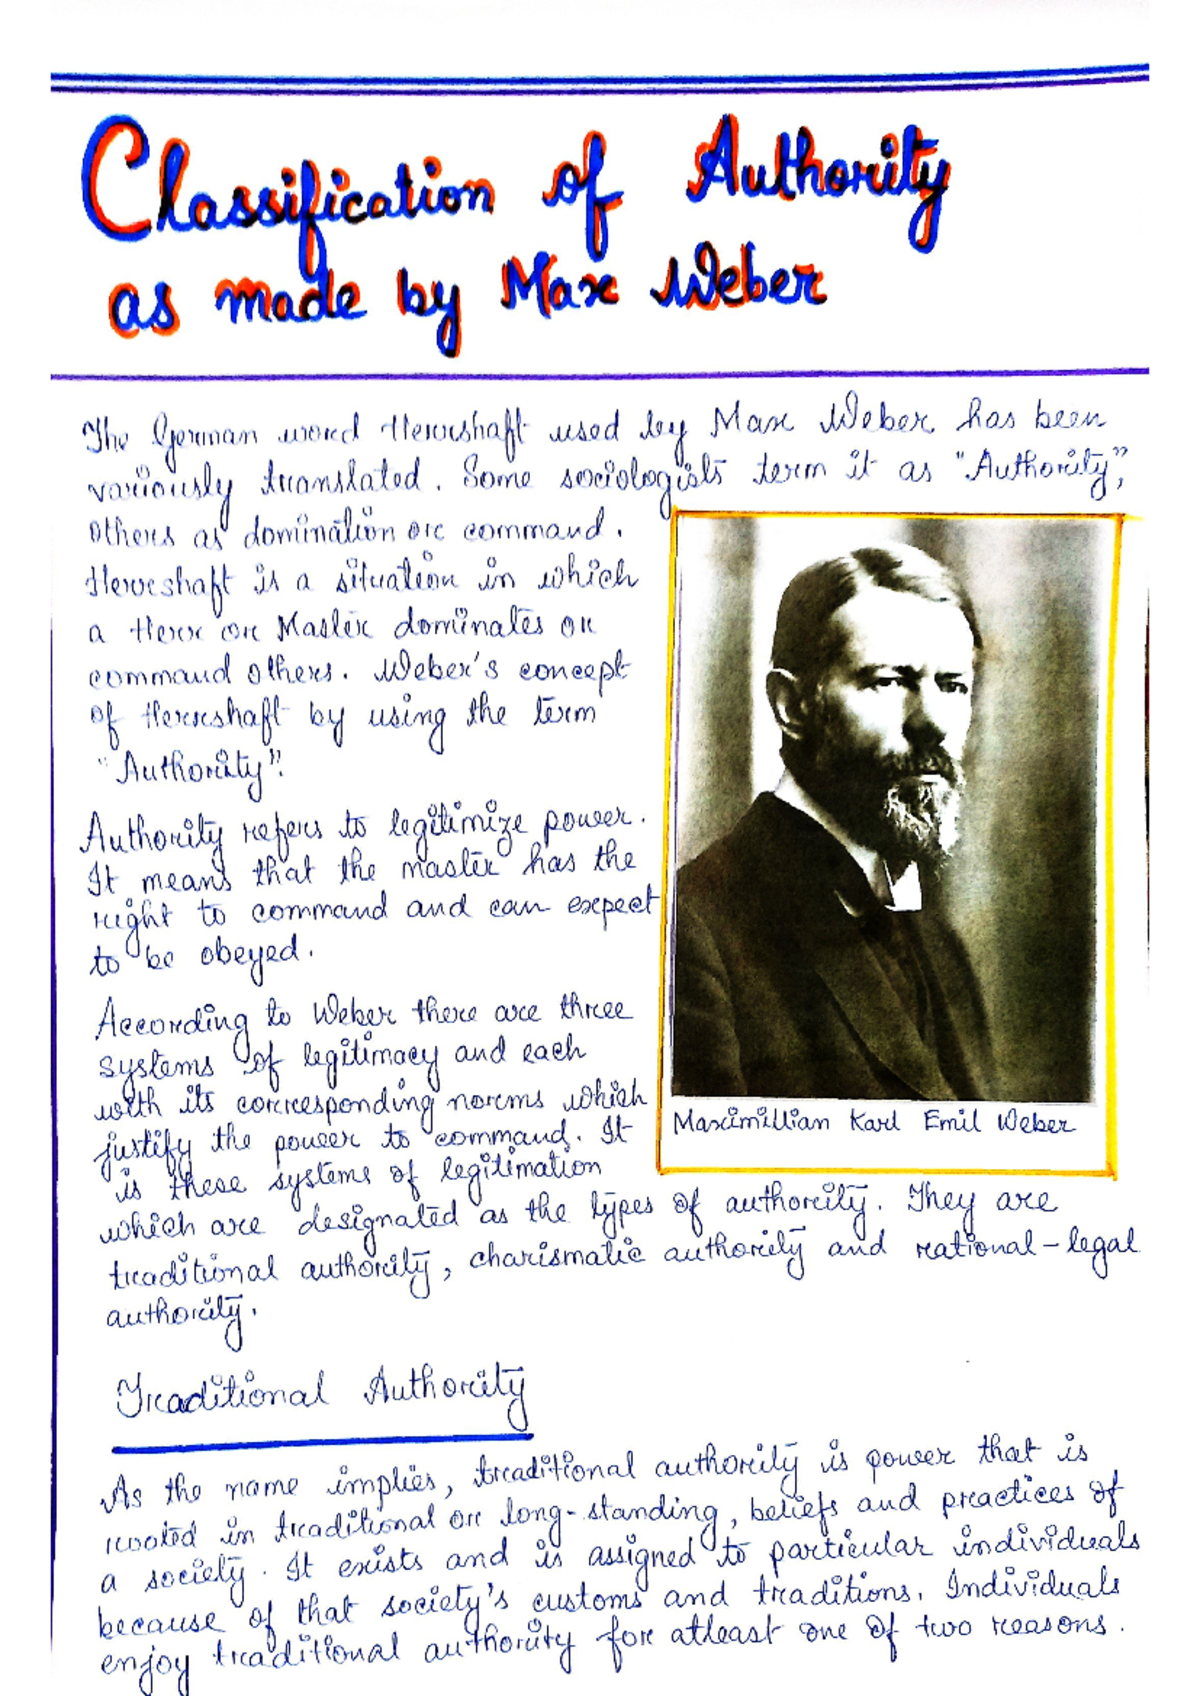 Classification of Authority
as made by Max Weber
The German word Herrshaft used by Max Weber has been
variously translated. Some sociologists term it as "Authority",
others as domination or command.
Herrshaft is a situation in which
a Herr or Master dominates or
command others. Weber's concept
of Herrshaft by using the term
"Authority".
Authority refers to legitimize power.
It means that the master has the
right to command and can expect
to be obeyed.
According to Weber there are three
systems of legitimacy and each
with its corresponding norms which
justify the power to command. It
is these systems of legitimation
which are designated as the types of authority. They are
traditional authority, charismatic authority and rational-legal
authority.
Maximillian Karl Emil Weber
Traditional Authority
As the name implies, traditional authority is power that is
rooted in traditional or long-standing, beliefs and practices of
a society. It exists and is assigned to particular individuals
because of that society's customs and traditions. Individuals
enjoy traditional authority for atleast one of two reasons.